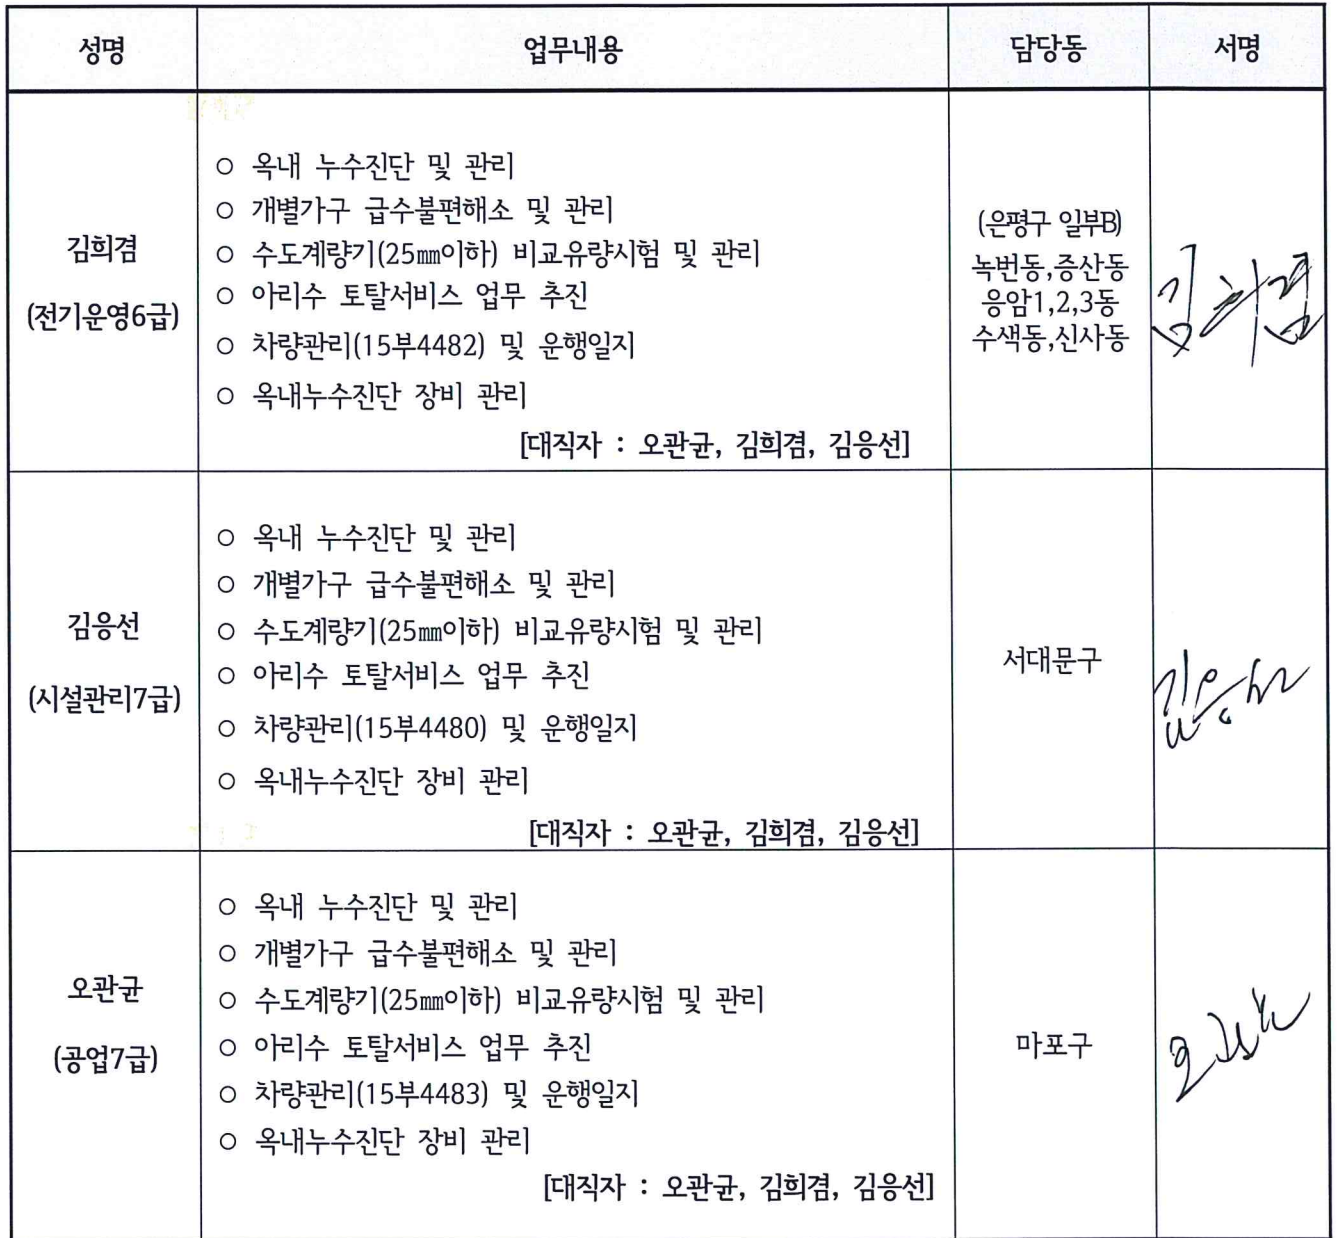 성명 업무내용 담당동 서명
김희겸
(전기운영6급)
○ 옥내 누수진단 및 관리
○ 개별가구 급수불편해소 및 관리
○ 수도계량기(25㎜이하) 비교유량시험 및 관리
○ 아리수 토탈서비스 업무 추진
○ 차량관리(15부4482) 및 운행일지
○ 옥내누수진단 장비 관리
[대직자 : 오관균, 김희겸, 김응선]
(은평구 일부B)
녹번동,증산동
응암1,2,3동
수색동,신사동
김희겸
김응선
(시설관리7급)
○ 옥내 누수진단 및 관리
○ 개별가구 급수불편해소 및 관리
○ 수도계량기(25㎜이하) 비교유량시험 및 관리
○ 아리수 토탈서비스 업무 추진
○ 차량관리(15부4480) 및 운행일지
○ 옥내누수진단 장비 관리
[대직자 : 오관균, 김희겸, 김응선]
서대문구
김응선
오관균
(공업7급)
○ 옥내 누수진단 및 관리
○ 개별가구 급수불편해소 및 관리
○ 수도계량기(25㎜이하) 비교유량시험 및 관리
○ 아리수 토탈서비스 업무 추진
○ 차량관리(15부4483) 및 운행일지
○ 옥내누수진단 장비 관리
[대직자 : 오관균, 김희겸, 김응선]
마포구